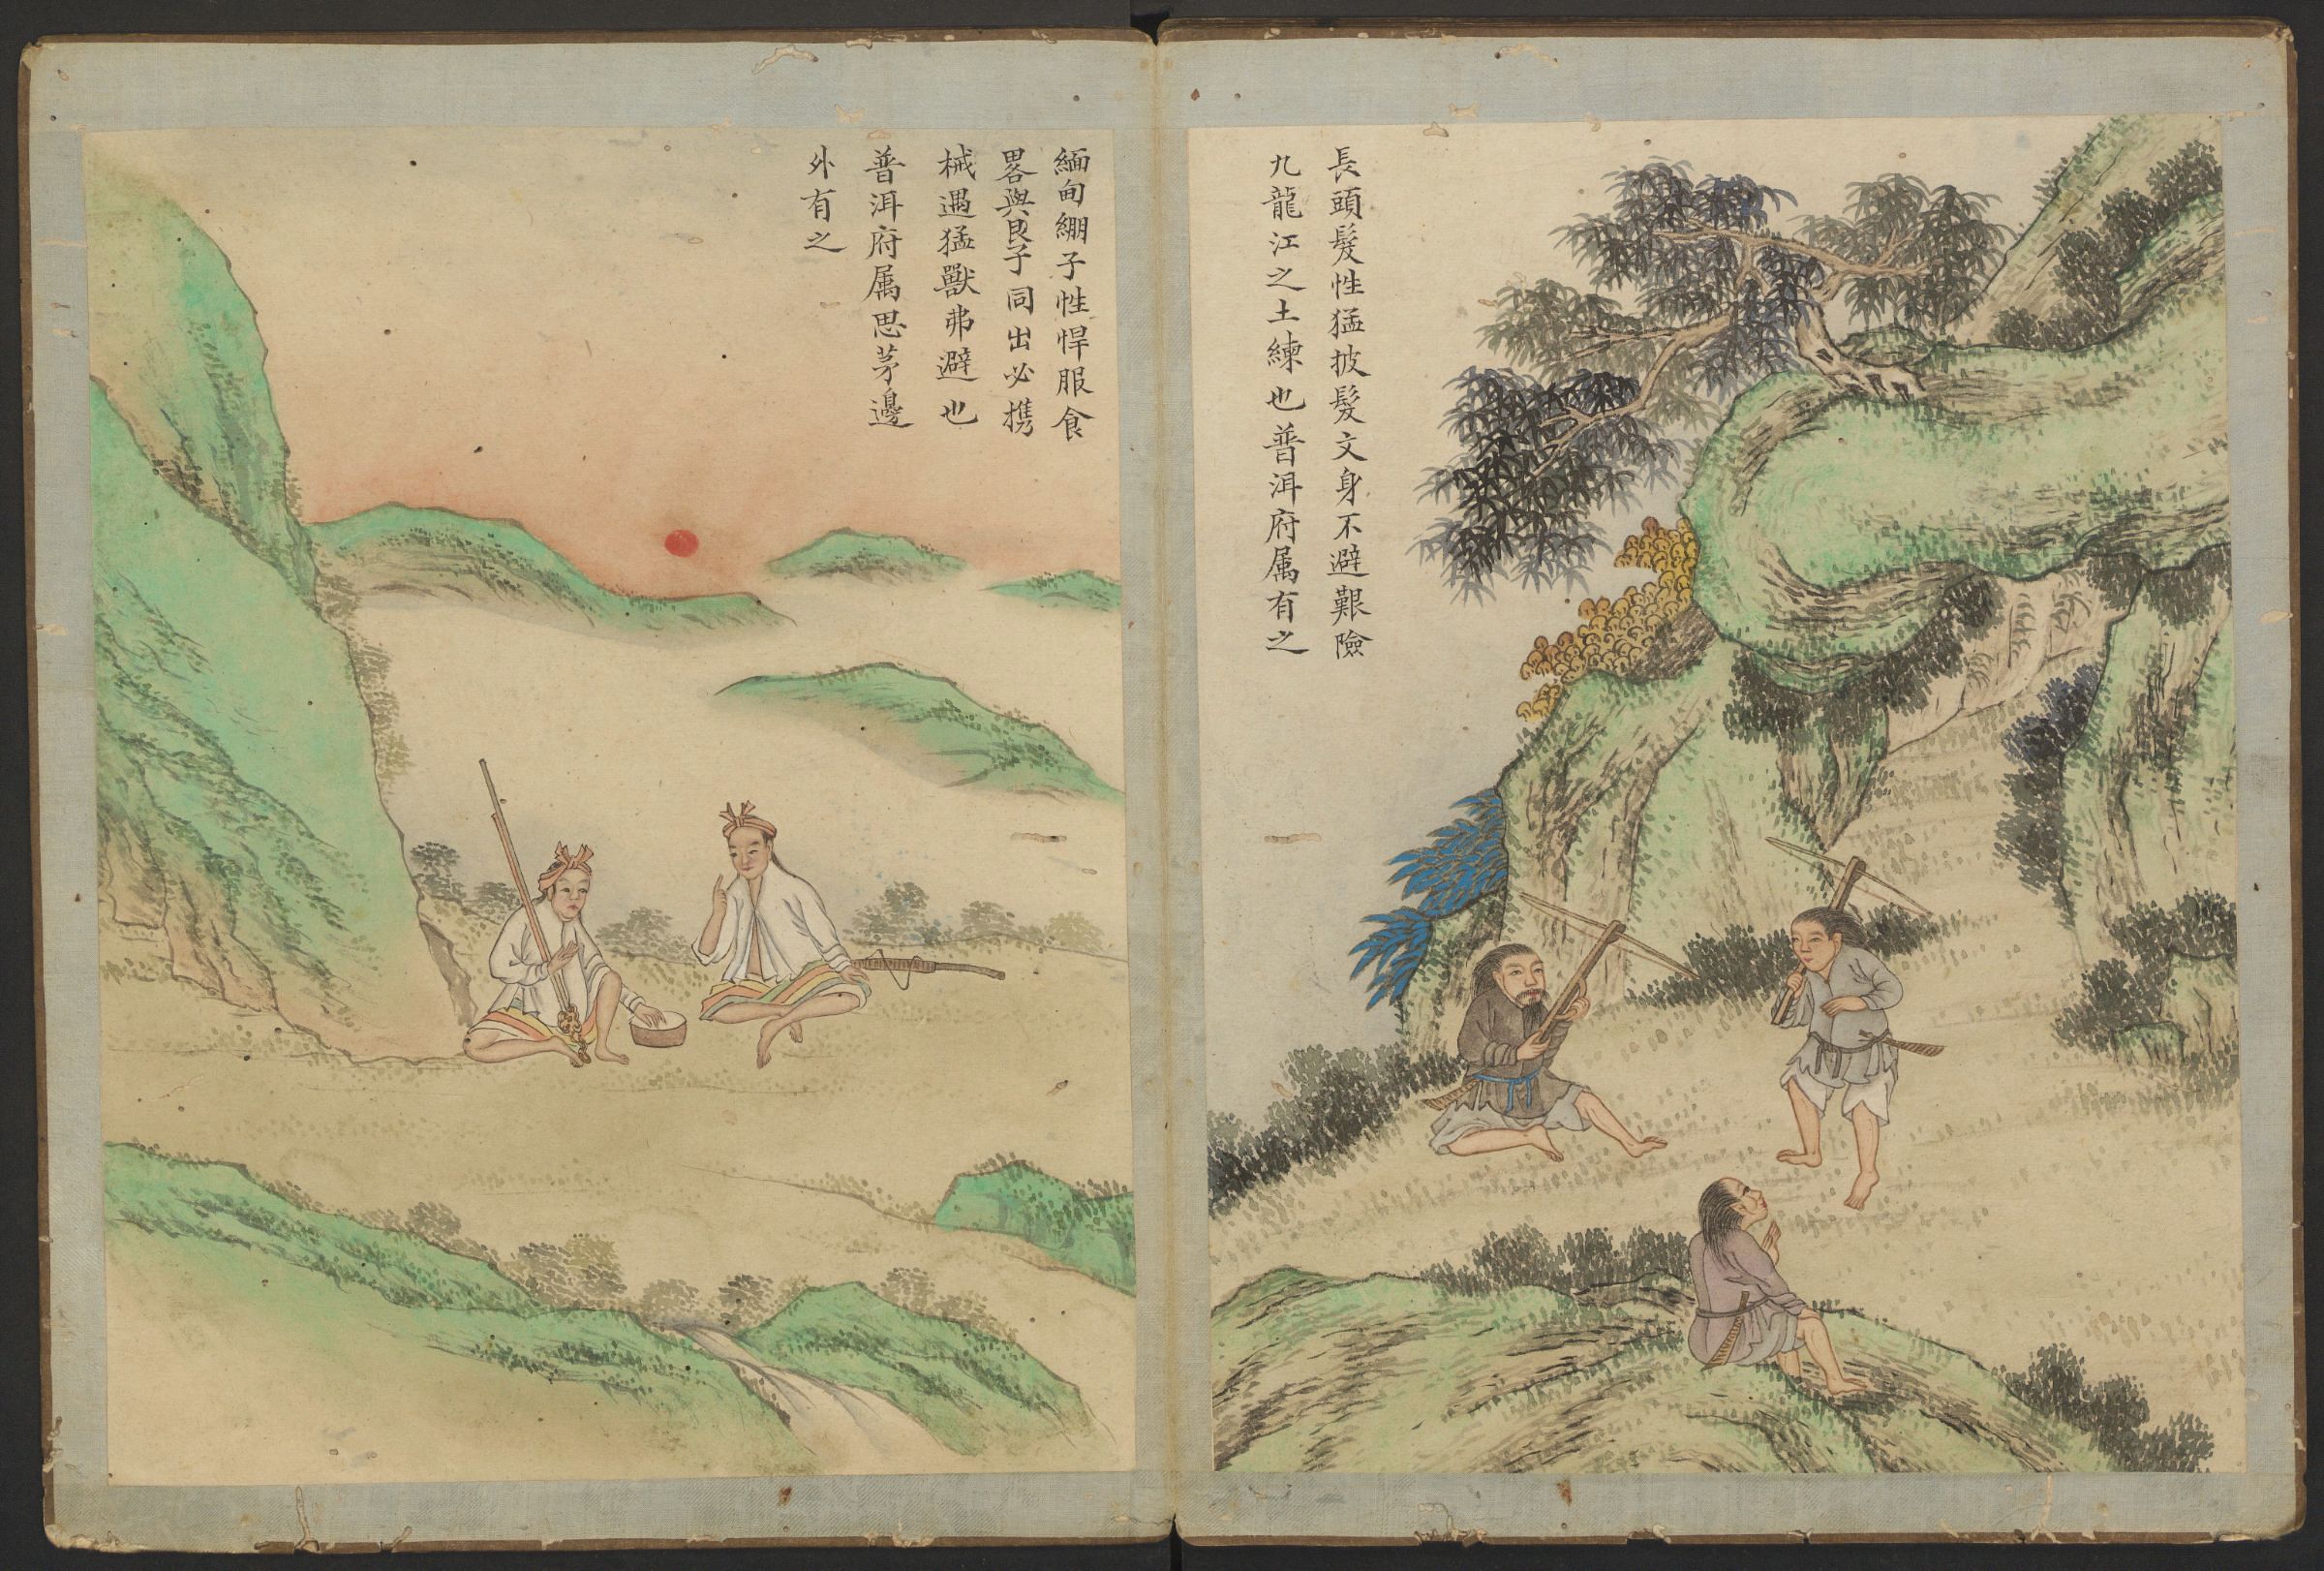 長頭髮性猛披髮文身不避艱險
九龍江之土練也普洱府属有之
緬甸繃子性悍服食
畧與艮子同出必携
械遇猛獸弗避也
普洱府属思茅邊
外有之